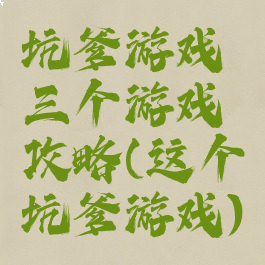 坑爹游戏
三个游戏
攻略(这个
坑爹游戏)